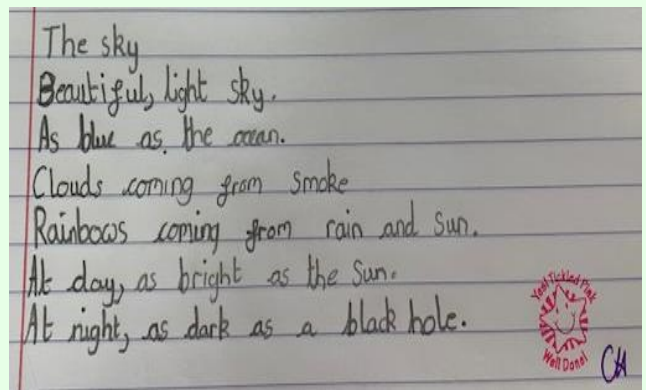 The sky
Beautiful, light sky.
As blue as the ocean.
Clouds coming from smoke
Rainbows coming from rain and sun.
At day, as bright as the sun.
At night, as dark as a black hole.
Yes! Tickled Pink
Well Done!
CH